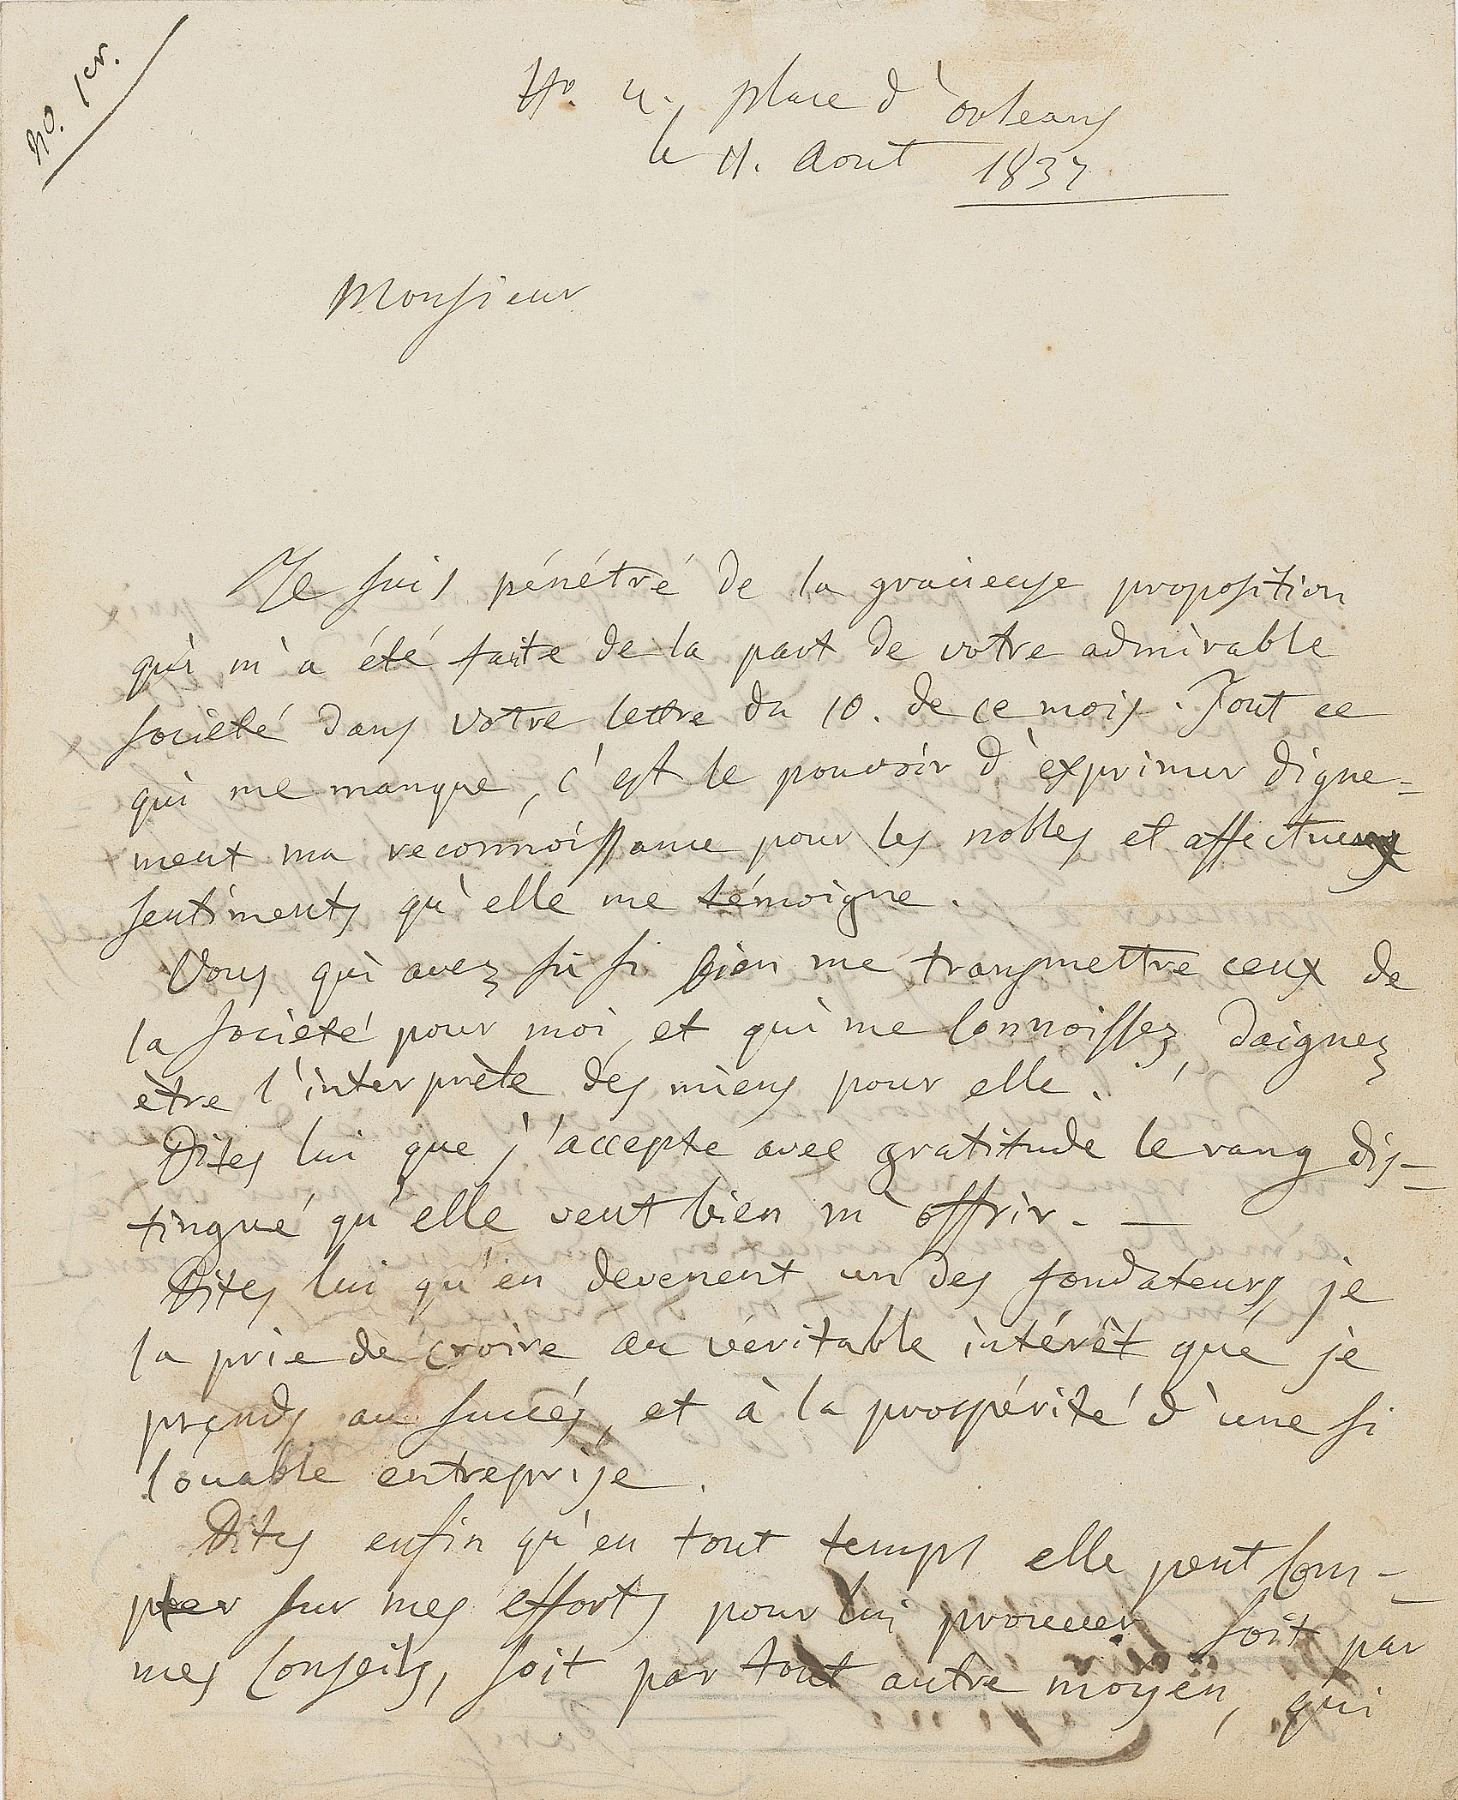 no. 1er.
No. 4., place d'orleans
le 11. Aout 1837
Monsieur
Je suis pénétré de la gracieuse proposition
qui m'a été faite de la part de votre admirable
société dans votre lettre du 10. de ce mois. Tout ce
qui me manque, c'est le pouvoir d'exprimer digne-
ment ma reconnoissance pour les nobles et affectueux
sentiments qu'elle me témoigne.
Vous qui avez sû si bien me transmettre ceux de
la société pour moi, et qui me connoissez, daignez
être l'interprète des miens pour elle.
Dites lui que j'accepte avec gratitude le rang dis-
tingué qu'elle veut bien m'offrir. -
Dites lui qu'en devenent un des fondateurs, je
la prie de croire au véritable intérêt que je
prends au succés, et à la prospérité d'une si
louable entreprise.
Dites enfin qu'en tout temps elle peut com-
pter sur mes efforts pour lui prouver soit par
mes conseils, soit par tout autre moyen, qui